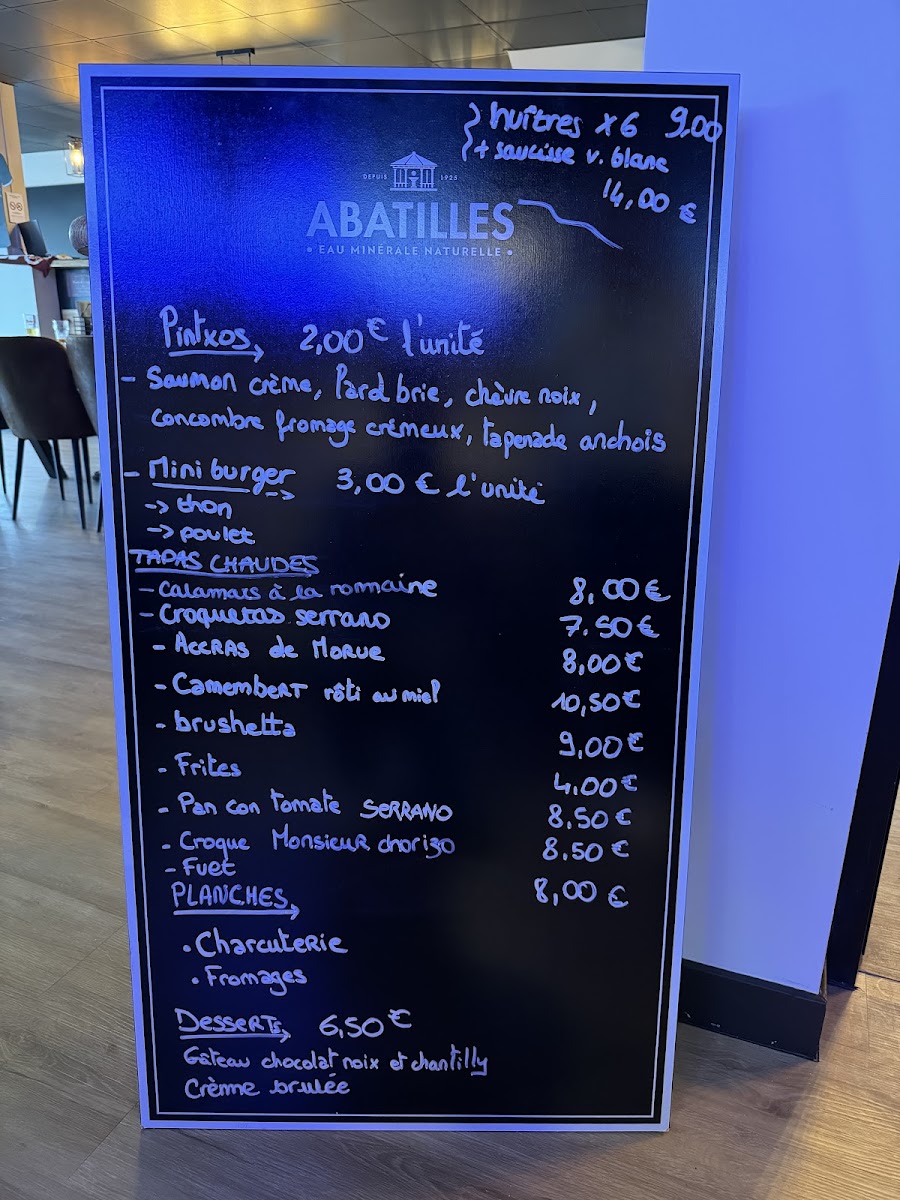 huîtres x6 9,00
+ saucisse v. blanc
14,00 €
DEPUIS 1925
ABATILLES
• EAU MINÉRALE NATURELLE •
Pintxos 2,00 € l'unité
- Saumon crème, Lard brie, chèvre noix,
concombre fromage crémeux, tapenade anchois
- Mini burger -> 3,00 € l'unité
-> thon
-> poulet
TAPAS CHAUDES
- Calamars à la romaine 8,00 €
- Croquetas serrano 7.50 €
- Accras de Morue 8,00 €
- Camembert rôti au miel 10,50 €
- brushetta 9,00 €
- Frites 4.00 €
- Pan con tomate SERRANO 8.50 €
- Croque Monsieur chorizo 8.50 €
- Fuet 8,00 €
PLANCHES
• Charcuterie
• Fromages
Desserts 6,50 €
Gâteau chocolat noix et chantilly
Crème brulée